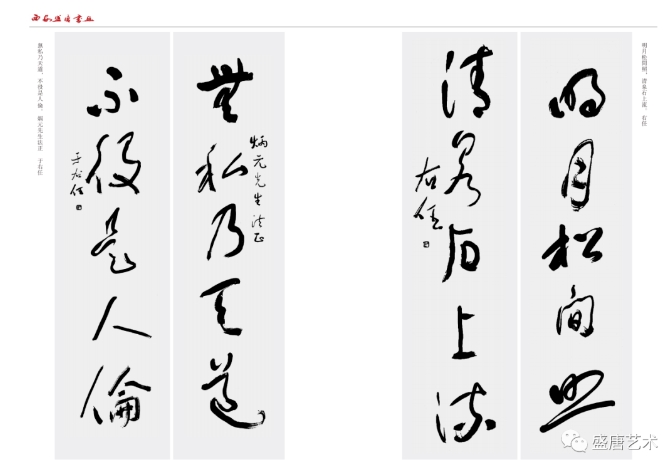 明月松間照，清泉石上流。 右任
明月松間照
清泉石上流
右任
炳元先生法正
無私乃天道
不役是人倫
于右任
無私乃天道，不役是人倫。 炳元先生法正 于右任
盛唐艺术